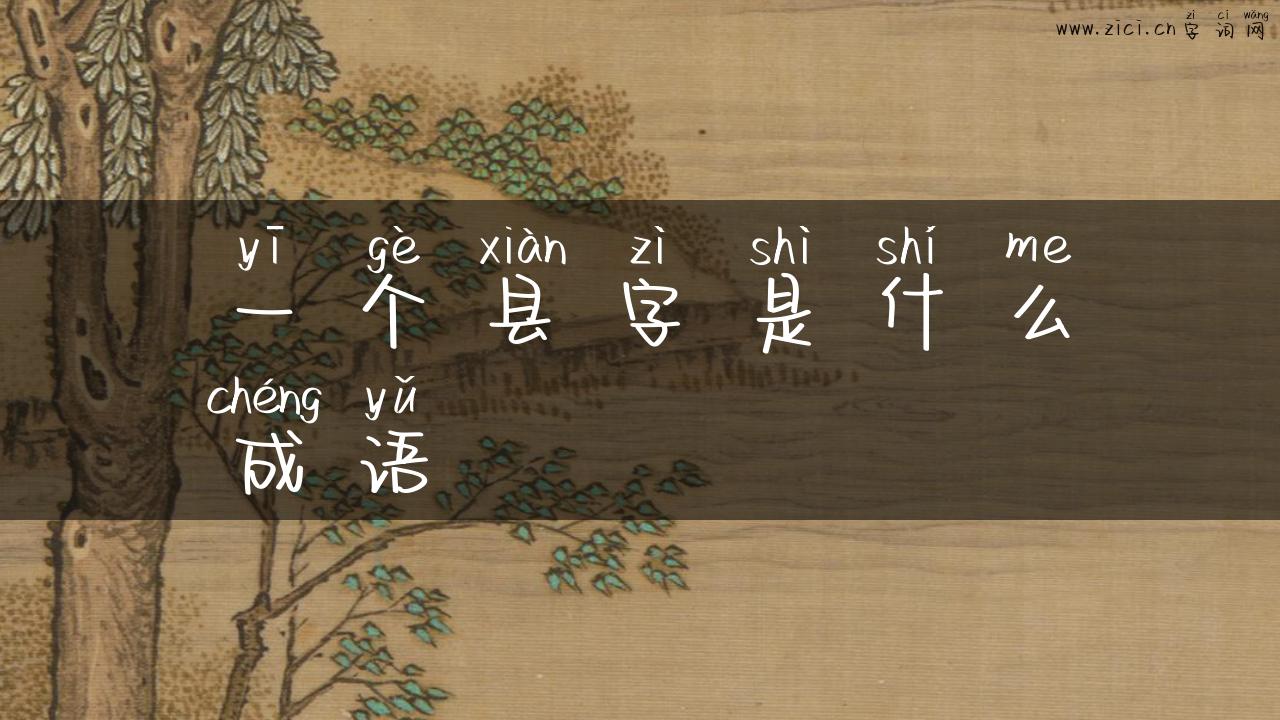 zì cí wǎng
www.zici.cn 字 词 网
yī gè xiàn zì shì shí me
一 个 县 字 是 什 么
chéng yǔ
成 语